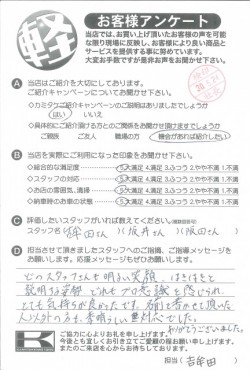 軽
お客様アンケート
当店では、お買い上げ頂いたお客様の声を可能
な限り現場に反映し、お客様により良い商品と
サービスを提供する事に努めています。
大変お手数ですが是非お声をお聞かせ下さい。
A 当店はご紹介を大切にしております。
ご紹介キャンペーンについてお聞かせ下さい。
◇カミタウご紹介キャンペーンのご説明はありましたでしょうか
はい いいえ
◇具体的にご紹介頂ける方とのご関係をお聞かせ頂けますでしょうか
ご親族 ご友人 職場の方 機会があれば紹介したい
B 当店を実際にご利用になった印象をお聞かせ下さい。
◇総合的な満足度 5大満足 4.満足 3.ふつう 2.やや不満 1.不満
◇スタッフの対応 5大満足 4.満足 3.ふつう 2.やや不満 1.不満
◇お店の雰囲気、清掃 5大満足 4.満足 3.ふつう 2.やや不満 1.不満
◇納車時のお車の状態 5大満足 4.満足 3.ふつう 2.やや不満 1.不満
C 評価したいスタッフがいれば教えてください。
スタッフ名 ( さん ) ( 坂井さん ) ( 阪田さん )
D 担当させて頂きましたスタッフへのご指導、ご指導メッセージを
お願いします。応援メッセージもぜひお願いします。
どのスタッフさんも明るい笑顔 はきはきと
説明する姿勢 どれもプロ意識を感じられ
とても気持ちが良かったです。 頂いた
人以外の方も素晴らしい対応でした。
ありがとうございました。
ご協力に心よりお礼を申し上げます。
今後とも宜しくお引き立てご愛顧の程お願い申し上げます。
またのご来店を心よりお待ちしております。
担当( 吉牟田 )